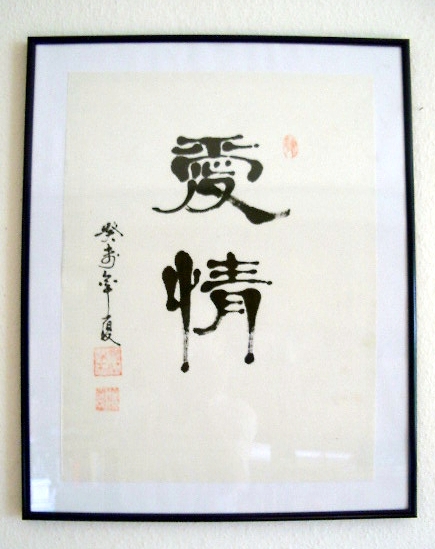 愛情
癸未年夏